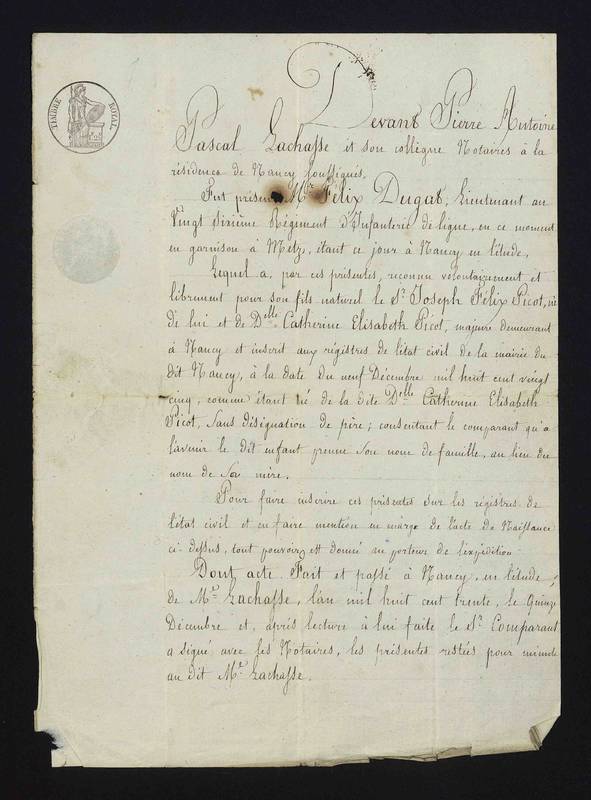 TIMBRE ROYAL.
Devant Pierre Antoine
Pascal Lachasse et son collègue Notaires à la
résidence de Nancy soussignés.
Fut présent Mr Félix Dugat, Lieutenant au
Vingt sixième Régiment d'Infanterie de ligne, en ce moment
en garnison à Metz, étant ce jour à Nancy en l'étude,
Lequel a, par ces présentes, reconnu volontairement et
librement pour son fils naturel le Sr. Joseph Félix Picot, né
de lui et de Delle Catherine Elisabeth Picot, majeure demeurant
à Nancy et inscrit aux régistres de l'état civil de la mairie du
dit Nancy, à la date du neuf Décembre mil huit cent vingt
cinq, comme étant né de la dite Delle Catherine Elisabeth
Picot, sans désignation de père; consentant le comparant qu'à
l'avenir le dit enfant prenne son nom de famille, au lieu du
nom de sa mère.
Pour faire inscrire ces présentes sur les régistres de
l'état civil et en faire mention en marge de l'acte de Naissance
ci-dessus, tout pouvoir est donné au porteur de l'expédition.
Dont acte. Fait et passé à Nancy, en l'étude
de Me. Lachasse, l'an mil huit cent trente, le Quinze
Décembre et, après lecture à lui faite le Sr. Comparant
a signé avec les Notaires, les présentes restées pour minute
au dit Me. Lachasse.